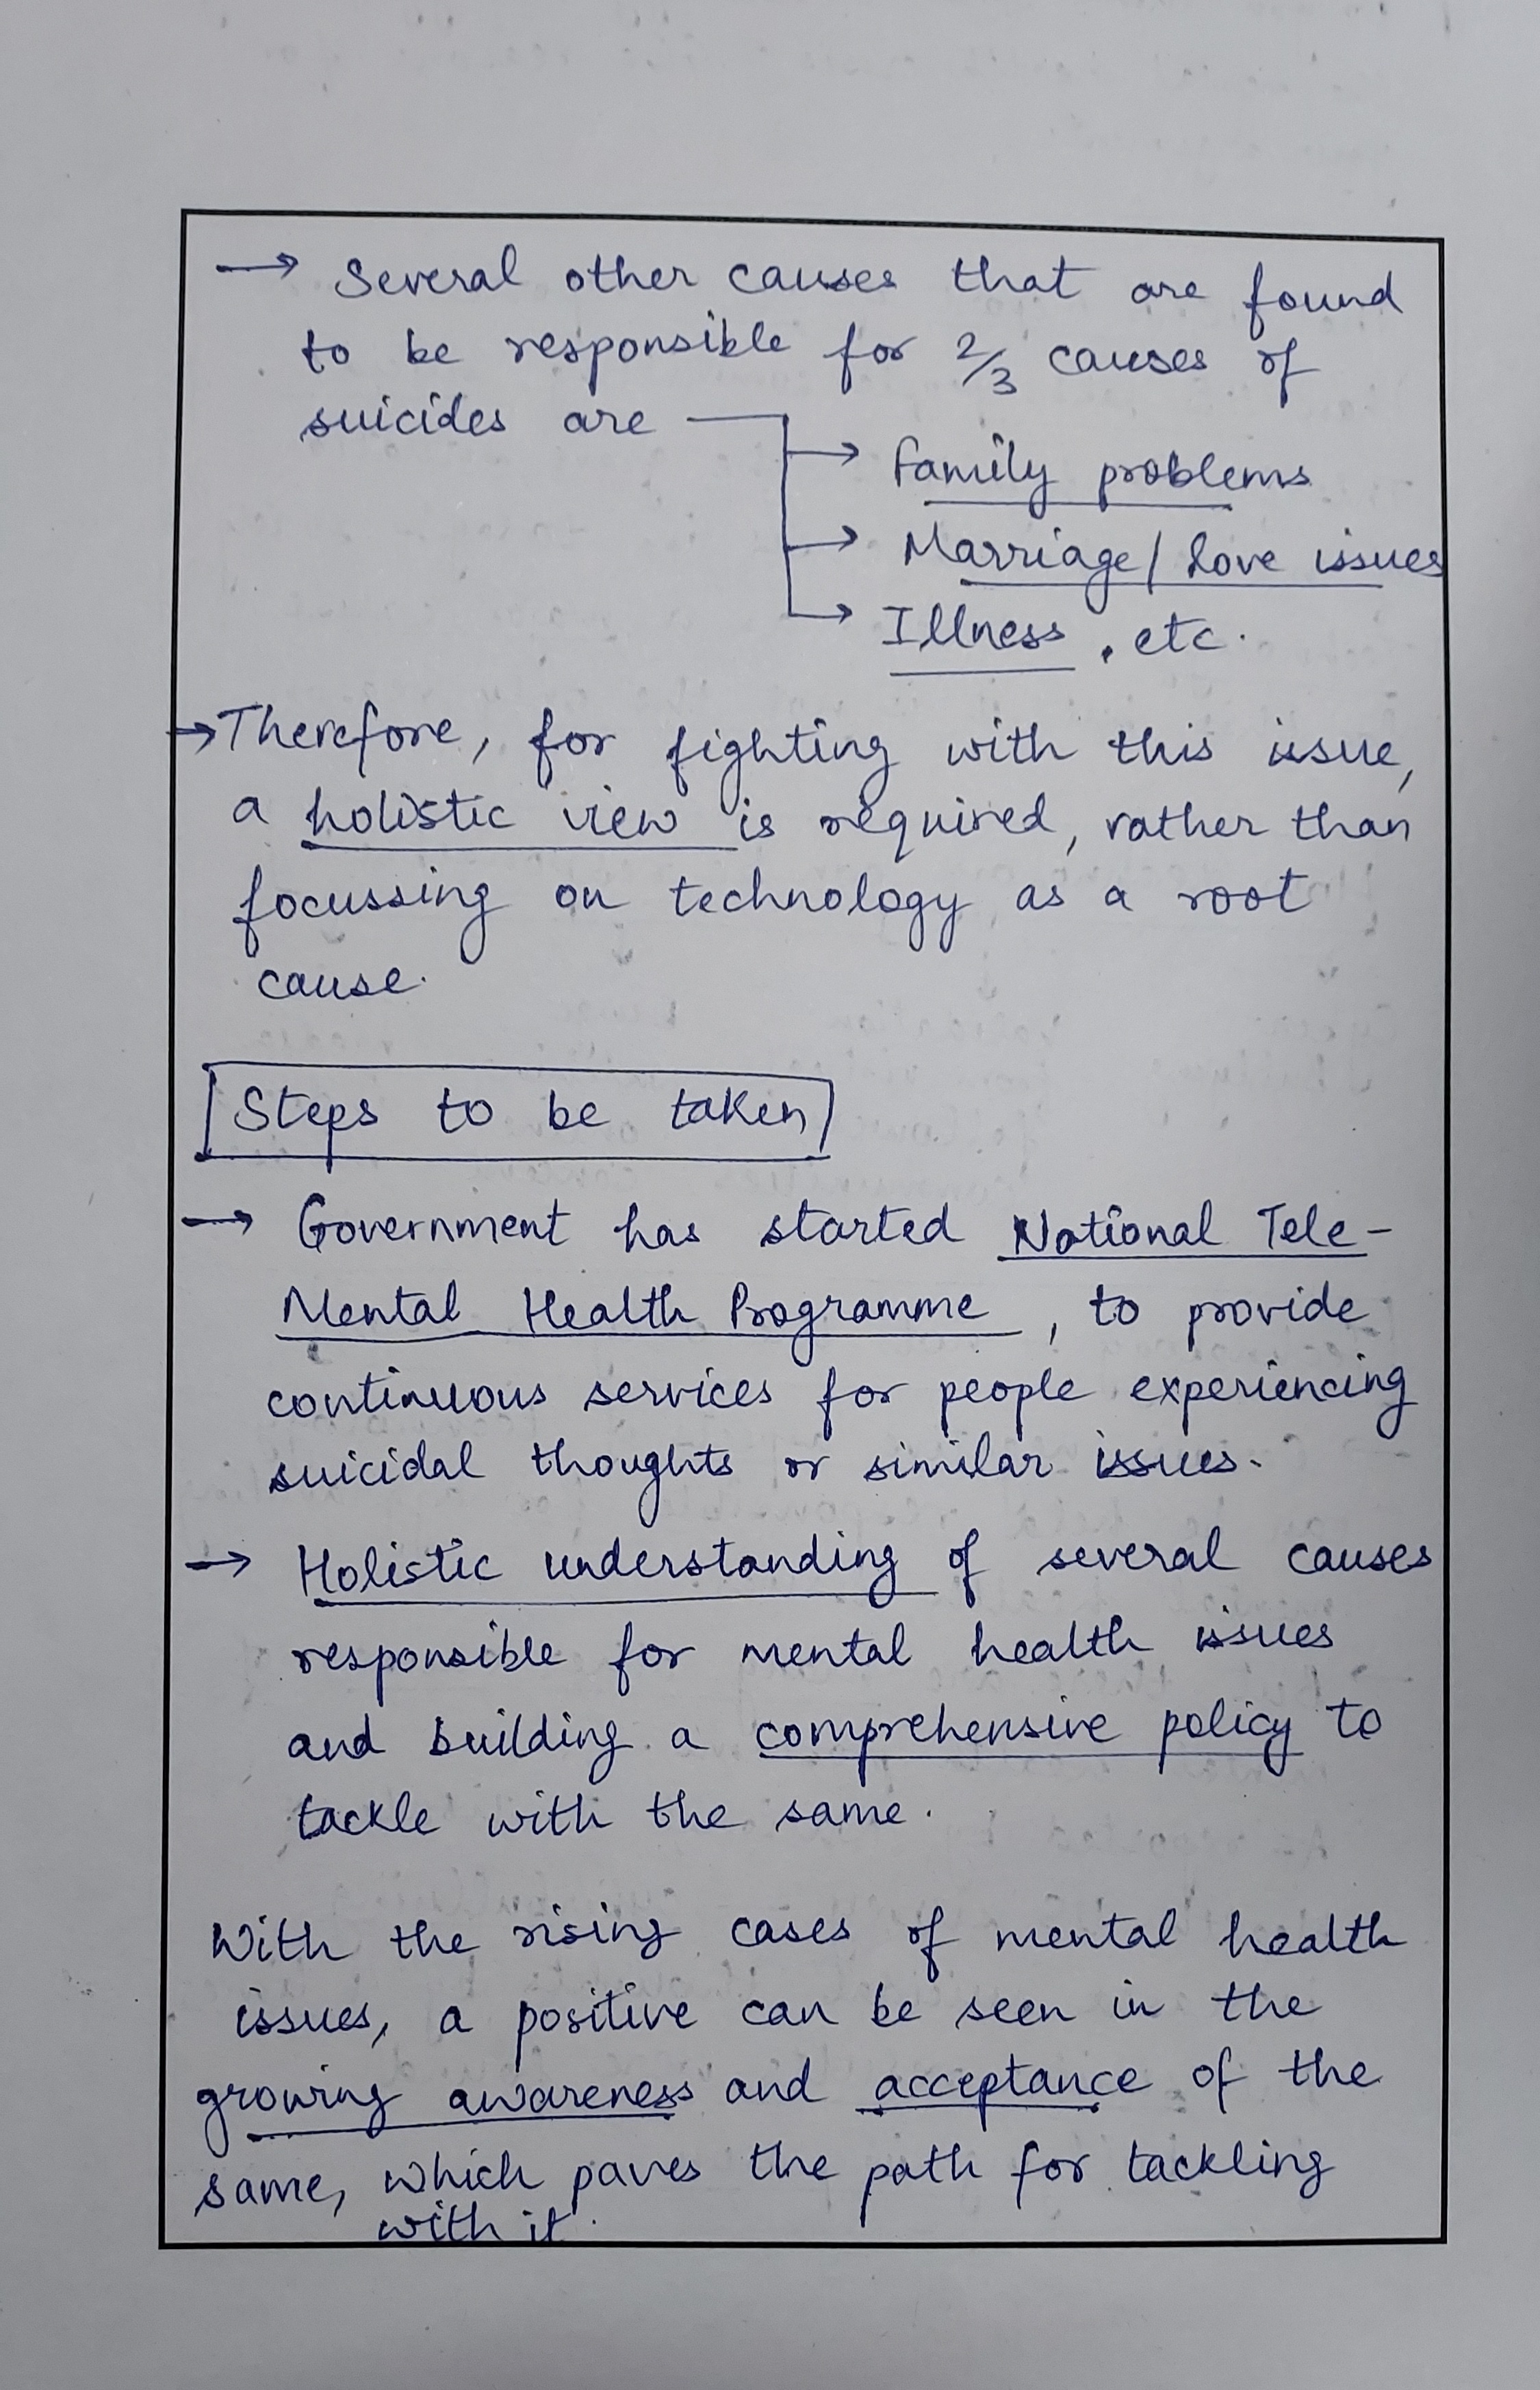 → Several other causes that are found
to be responsible for 2/3 causes of
suicides are
→ Family problems
→ Marriage/ Love issues
→ Illness, etc.
→ Therefore, for fighting with this issue,
a holistic view is required, rather than
focussing on technology as a root
cause.
Steps to be taken
→ Government has started National Tele-
Mental Health Programme, to provide
continuous services for people experiencing
suicidal thoughts or similar issues.
→ Holistic understanding of several causes
responsible for mental health issues
and building a comprehensive policy to
tackle with the same.
With the rising cases of mental health
issues, a positive can be seen in the
growing awareness and acceptance of the
same, which paves the path for tackling
with it.